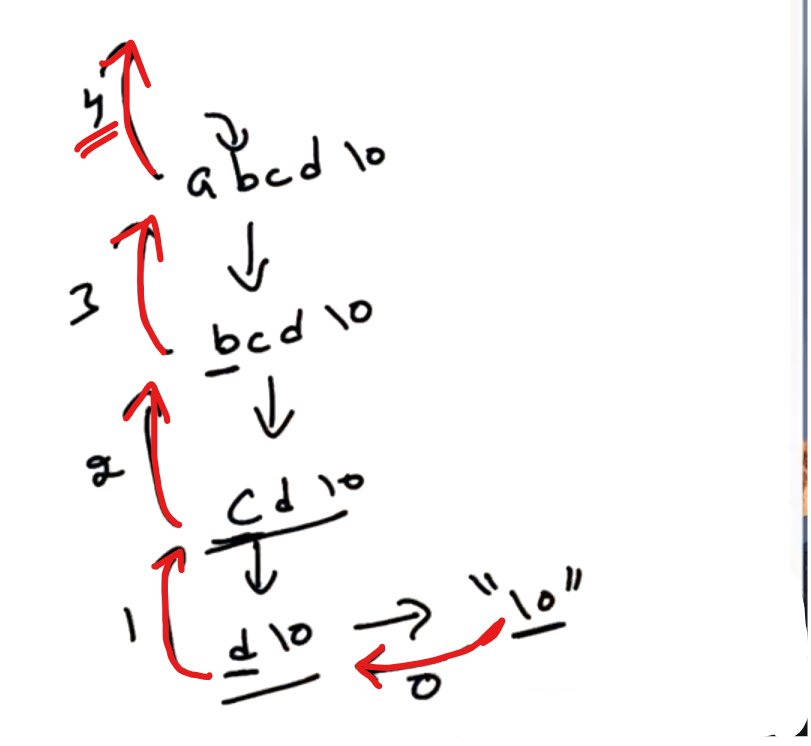 4
abcd \0
3
bcd \0
2
cd \0
1
d \0
"\0"
0